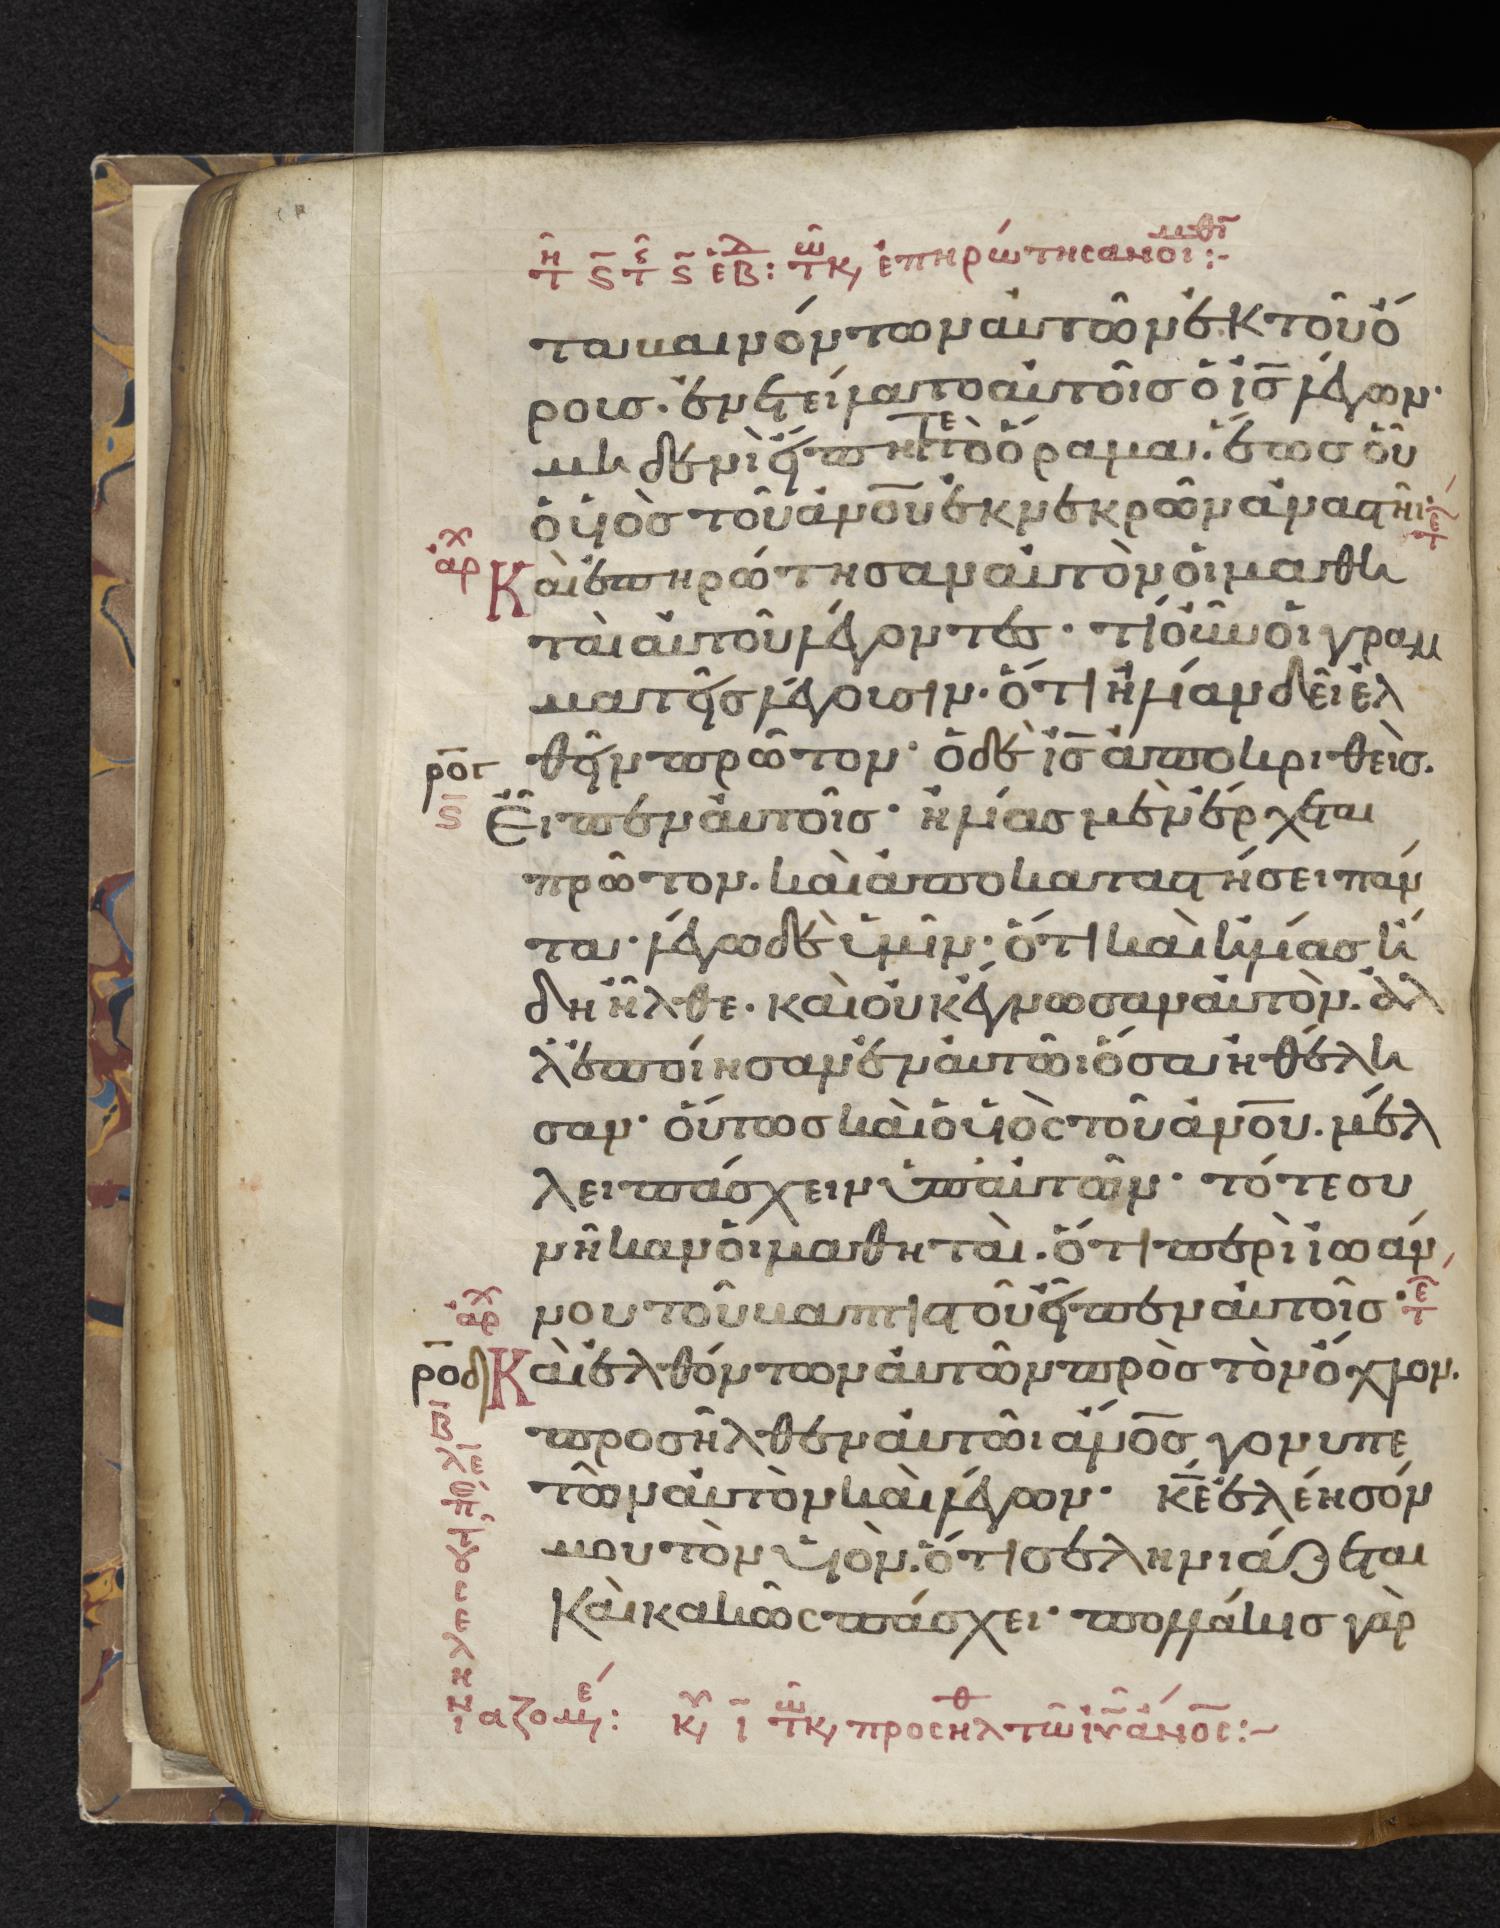 τῆ ϛ̄ τ ε̑ ϛ̄ ἑβδ: τῶ κ, ἐπηρώτησαν οἱ μθι:~
ταβαινόντων αὐτῶν ἐκ τοῦ ὄ
ρους· ἐνετείλατο αὐτοῖς ὁ ἰς̄ λέγων·
μηδενὶ εἴπητε τὸ ὅραμα· ἕως οὗ
ὁ υἱὸς τοῦ ἀνο̄υ ἐκ νεκρῶν ἀναστῆι·
ἀρχ Καὶ ἐπηρώτησαν αὐτὸν οἱ μαθη
ταὶ αὐτοῦ λέγοντες· τί οὖν οἱ γραμ
ματεῖς λέγουσιν· ὅτι ἠλίαν δεῖ ἐλ
ρο̄γ θεῖν πρῶτον· ὁ δὲ ἰς̄ ἀποκριθεὶς.
ϛ̄ Εἶπεν αὐτοῖς· ἠλίας μὲν ἔρχεται
πρῶτον. καὶ ἀποκαταστήσει πάν
τα· λέγω δὲ ὑμῖν· ὅτι καὶ ἠλίας ἤ
δη ἦλθε. καὶ οὐκ ἔγνωσαν αὐτὸν. ἀλ
λ᾽ ἐποίησαν ἐν αὐτῶι ὅσα ἠθέλη
σαν· οὕτως καὶ ὁ υἱὸς τοῦ ἀνο̄υ. μέλ
λει πάσχειν ὑπ᾽ αὐτῶν· τότε συ
νῆκαν οἱ μαθηταὶ. ὅτι περὶ ἰωάν
ἀρχ νου τοῦ βαπτιστοῦ εἶπεν αὐτοῖς·
ρο̄δ Καὶ ἐλθόντων αὐτῶν πρὸς τὸν ὄχλον.
προσῆλθεν αὐτῶι ἀνο̄ς γονυπε
τῶν αὐτὸν καὶ λέγων· κ̄ε ἐλέησόν
μου τὸν υἱὸν. ὅτι σεληνιάζεται
Καὶ κακῶς πάσχει· πολλάκις γὰρ
κ, ῑ τῶ κ, προσηλθ τῶ ιῡ ἀνο̄ς:~